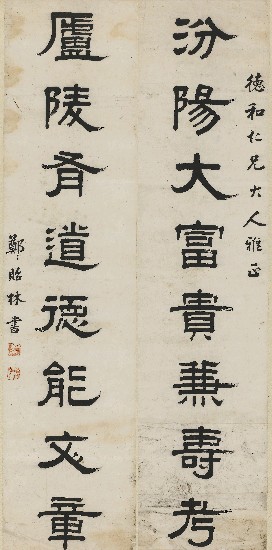 德和仁兄大人雅正
汾陽大富貴兼壽考
廬陵有道德能文章
鄭貽林書